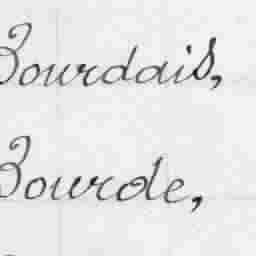 Bourdais,
Bourde,